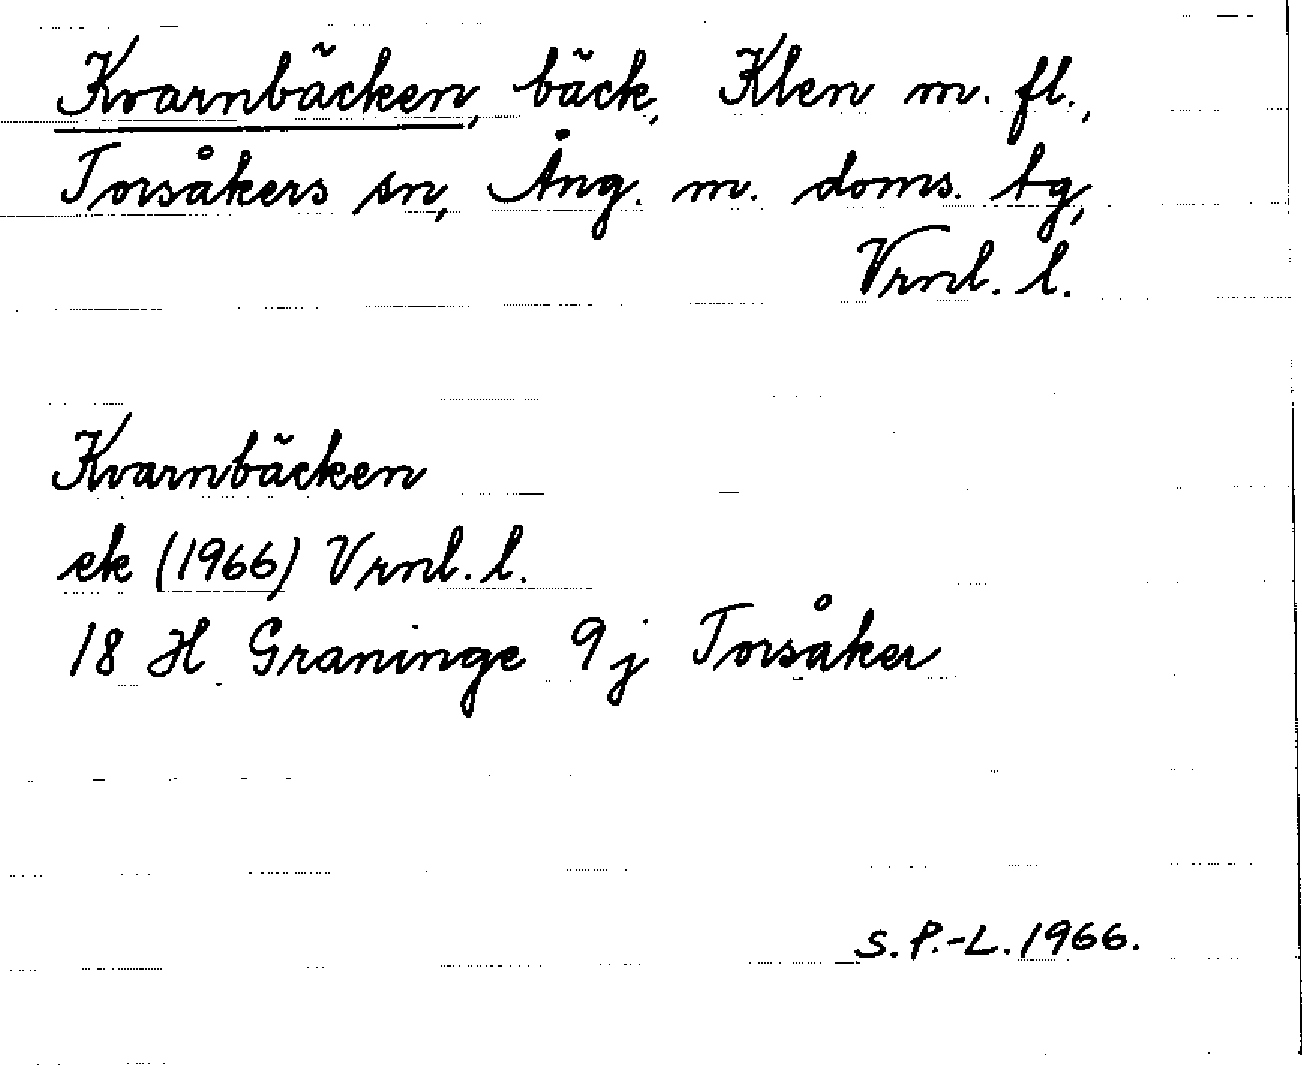 Kvarnbäcken, bäck, Klen m. fl.,
Torsåkers sn, Ång. m. doms. tg,
Vrnl. l.
Kvarnbäcken
ek (1966) Vrnl. l.
18 H Graninge 9j Torsåker
S. P.-L. 1966.